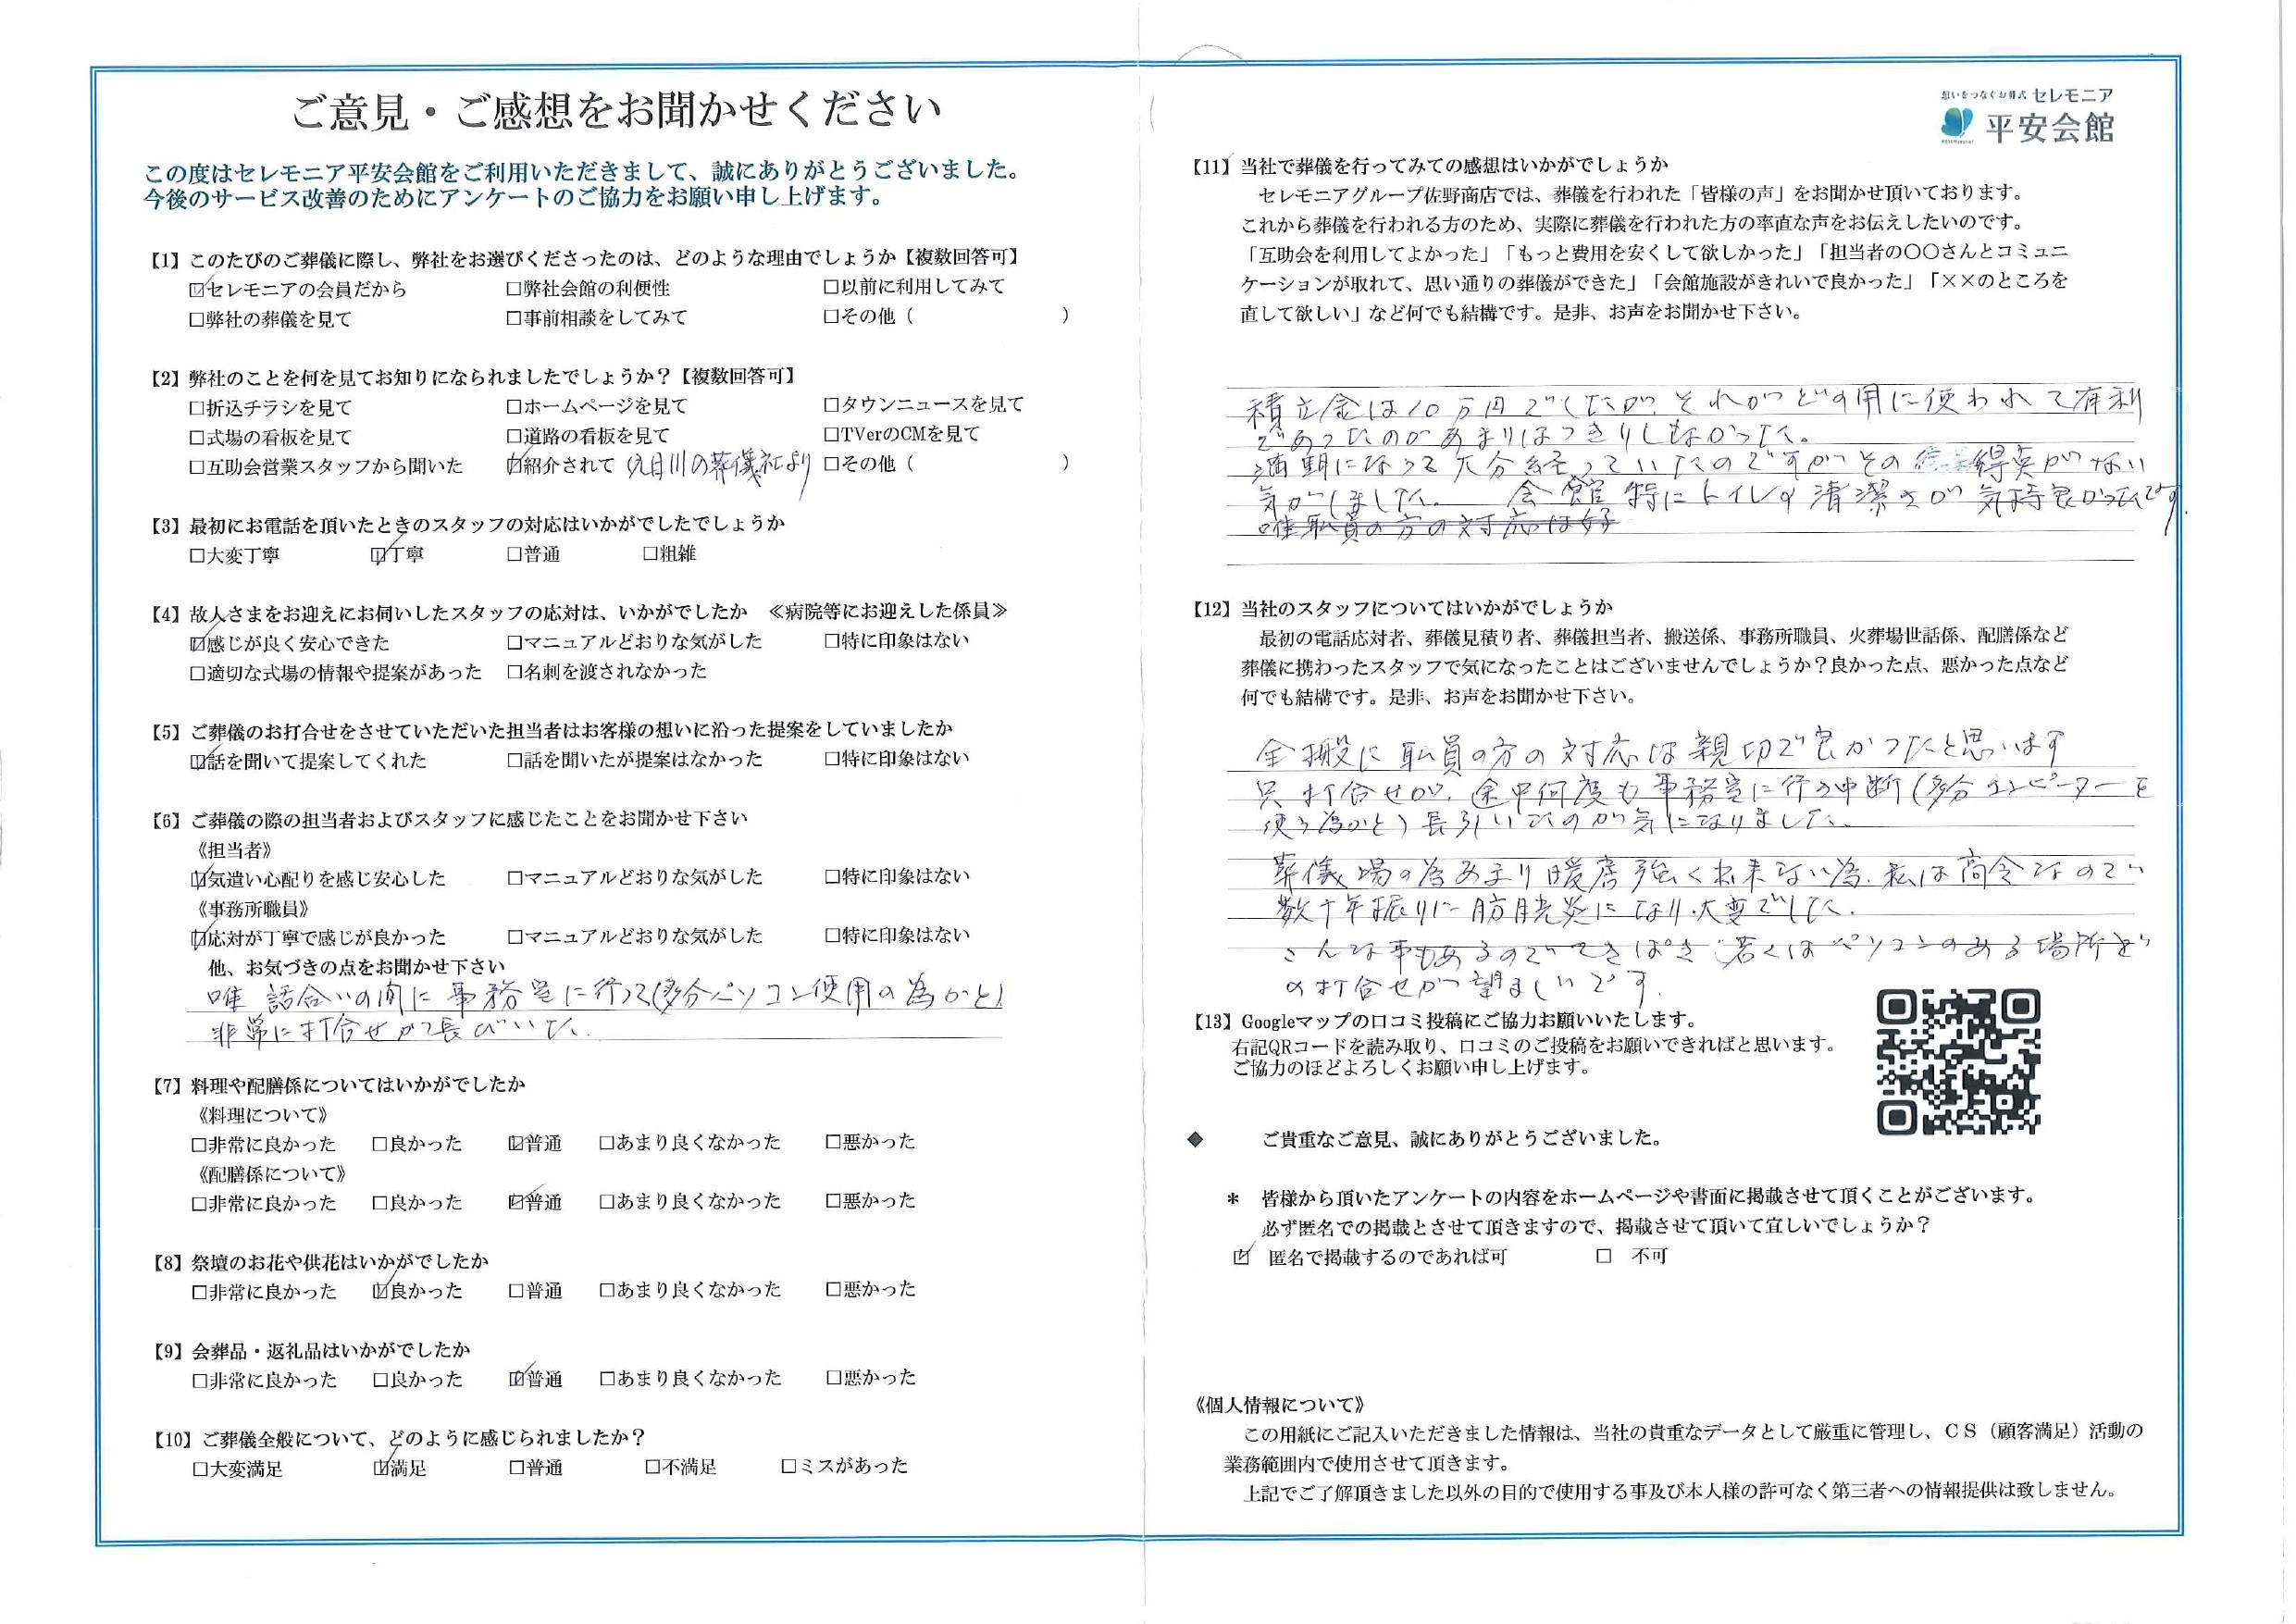 ご意見・ご感想をお聞かせください
この度はセレモニア平安会館をご利用いただきまして、誠にありがとうございました。
今後のサービス改善のためにアンケートのご協力をお願い申し上げます。
【1】このたびのご葬儀に際し、弊社をお選びくださったのは、どのような理由でしょうか【複数回答可】
☑セレモニアの会員だから □弊社会館の利便性 □以前に利用してみて
□弊社の葬儀を見て □事前相談をしてみて □その他（ ）
【2】弊社のことを何を見てお知りになられましたでしょうか？【複数回答可】
□折込チラシを見て □ホームページを見て □タウンニュースを見て
□式場の看板を見て □道路の看板を見て □TVerのCMを見て
□互助会営業スタッフから聞いた ☑紹介されて 川の葬儀社より □その他（ ）
【3】最初にお電話を頂いたときのスタッフの対応はいかがでしたでしょうか
□大変丁寧 ☑丁寧 □普通 □粗雑
【4】故人さまをお迎えにお伺いしたスタッフの応対は、いかがでしたか ≪病院等にお迎えした係員≫
☑感じが良く安心できた □マニュアルどおりな気がした □特に印象はない
□適切な式場の情報や提案があった □名刺を渡されなかった
【5】ご葬儀のお打合せをさせていただいた担当者はお客様の想いに沿った提案をしていましたか
☑話を聞いて提案してくれた □話を聞いたが提案はなかった □特に印象はない
【6】ご葬儀の際の担当者およびスタッフに感じたことをお聞かせ下さい
《担当者》
☑気遣い心配りを感じ安心した □マニュアルどおりな気がした □特に印象はない
《事務所職員》
☑応対が丁寧で感じが良かった □マニュアルどおりな気がした □特に印象はない
他、お気づきの点をお聞かせ下さい
唯 話合いの間に事務室に行って(多分パソコン使用の為かと)
非常に打合せが長びいた.
【7】料理や配膳係についてはいかがでしたか
《料理について》
□非常に良かった □良かった ☑普通 □あまり良くなかった □悪かった
《配膳係について》
□非常に良かった □良かった ☑普通 □あまり良くなかった □悪かった
【8】祭壇のお花や供花はいかがでしたか
□非常に良かった ☑良かった □普通 □あまり良くなかった □悪かった
【9】会葬品・返礼品はいかがでしたか
□非常に良かった □良かった ☑普通 □あまり良くなかった □悪かった
【10】ご葬儀全般について、どのように感じられましたか？
□大変満足 ☑満足 □普通 □不満足 □ミスがあった
想いをつなぐお葬式 セレモニア
平安会館
【11】当社で葬儀を行ってみての感想はいかがでしょうか
セレモニアグループ佐野商店では、葬儀を行われた「皆様の声」をお聞かせ頂いております。
これから葬儀を行われる方のため、実際に葬儀を行われた方の率直な声をお伝えしたいのです。
「互助会を利用してよかった」「もっと費用を安くして欲しかった」「担当者の〇〇さんとコミュニ
ケーションが取れて、思い通りの葬儀ができた」「会館施設がきれいで良かった」「××のところを
直して欲しい」など何でも結構です。是非、お声をお聞かせ下さい。
積立金は10万円でしたが、それがどの用に使われて有利
であったのかあまりはっきりしなかった。
満期になって大分経っていたのですがその 得点がない
気がしました. 会館 特にトイレの清潔さが気持良かったです.
唯職員の方の対応は好
【12】当社のスタッフについてはいかがでしょうか
最初の電話応対者、葬儀見積り者、葬儀担当者、搬送係、事務所職員、火葬場世話係、配膳係など
葬儀に携わったスタッフで気になったことはございませんでしょうか？良かった点、悪かった点など
何でも結構です。是非、お声をお聞かせ下さい。
全搬に職員の方の対応は親切で良かったと思います
只 打合せが、途中何度も事務室に行う中断(多分コンピーターを
使う為かと)長引いたのが気になりました.
葬儀場の為あまり暖房強く出来ない為.私は高令なので
数十年振りに膀胱炎になり.大変でした.
こんな事もあるのでてきぱき 若くはパソコンのある場所で
の打合せが望ましいです.
【13】Googleマップの口コミ投稿にご協力お願いいたします。
右記QRコードを読み取り、口コミのご投稿をお願いできればと思います。
ご協力のほどよろしくお願い申し上げます。
◆ ご貴重なご意見、誠にありがとうございました。
＊ 皆様から頂いたアンケートの内容をホームページや書面に掲載させて頂くことがございます。
必ず匿名での掲載とさせて頂きますので、掲載させて頂いて宜しいでしょうか？
☑ 匿名で掲載するのであれば可 □ 不可
《個人情報について》
この用紙にご記入いただきました情報は、当社の貴重なデータとして厳重に管理し、ＣＳ（顧客満足）活動の
業務範囲内で使用させて頂きます。
上記でご了解頂きました以外の目的で使用する事及び本人様の許可なく第三者への情報提供は致しません。